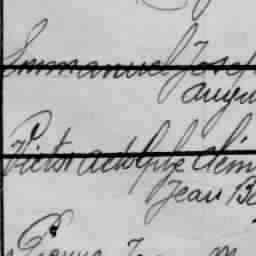 Emmanuel Josep
augu
Victor adolphe Clém
Jean B